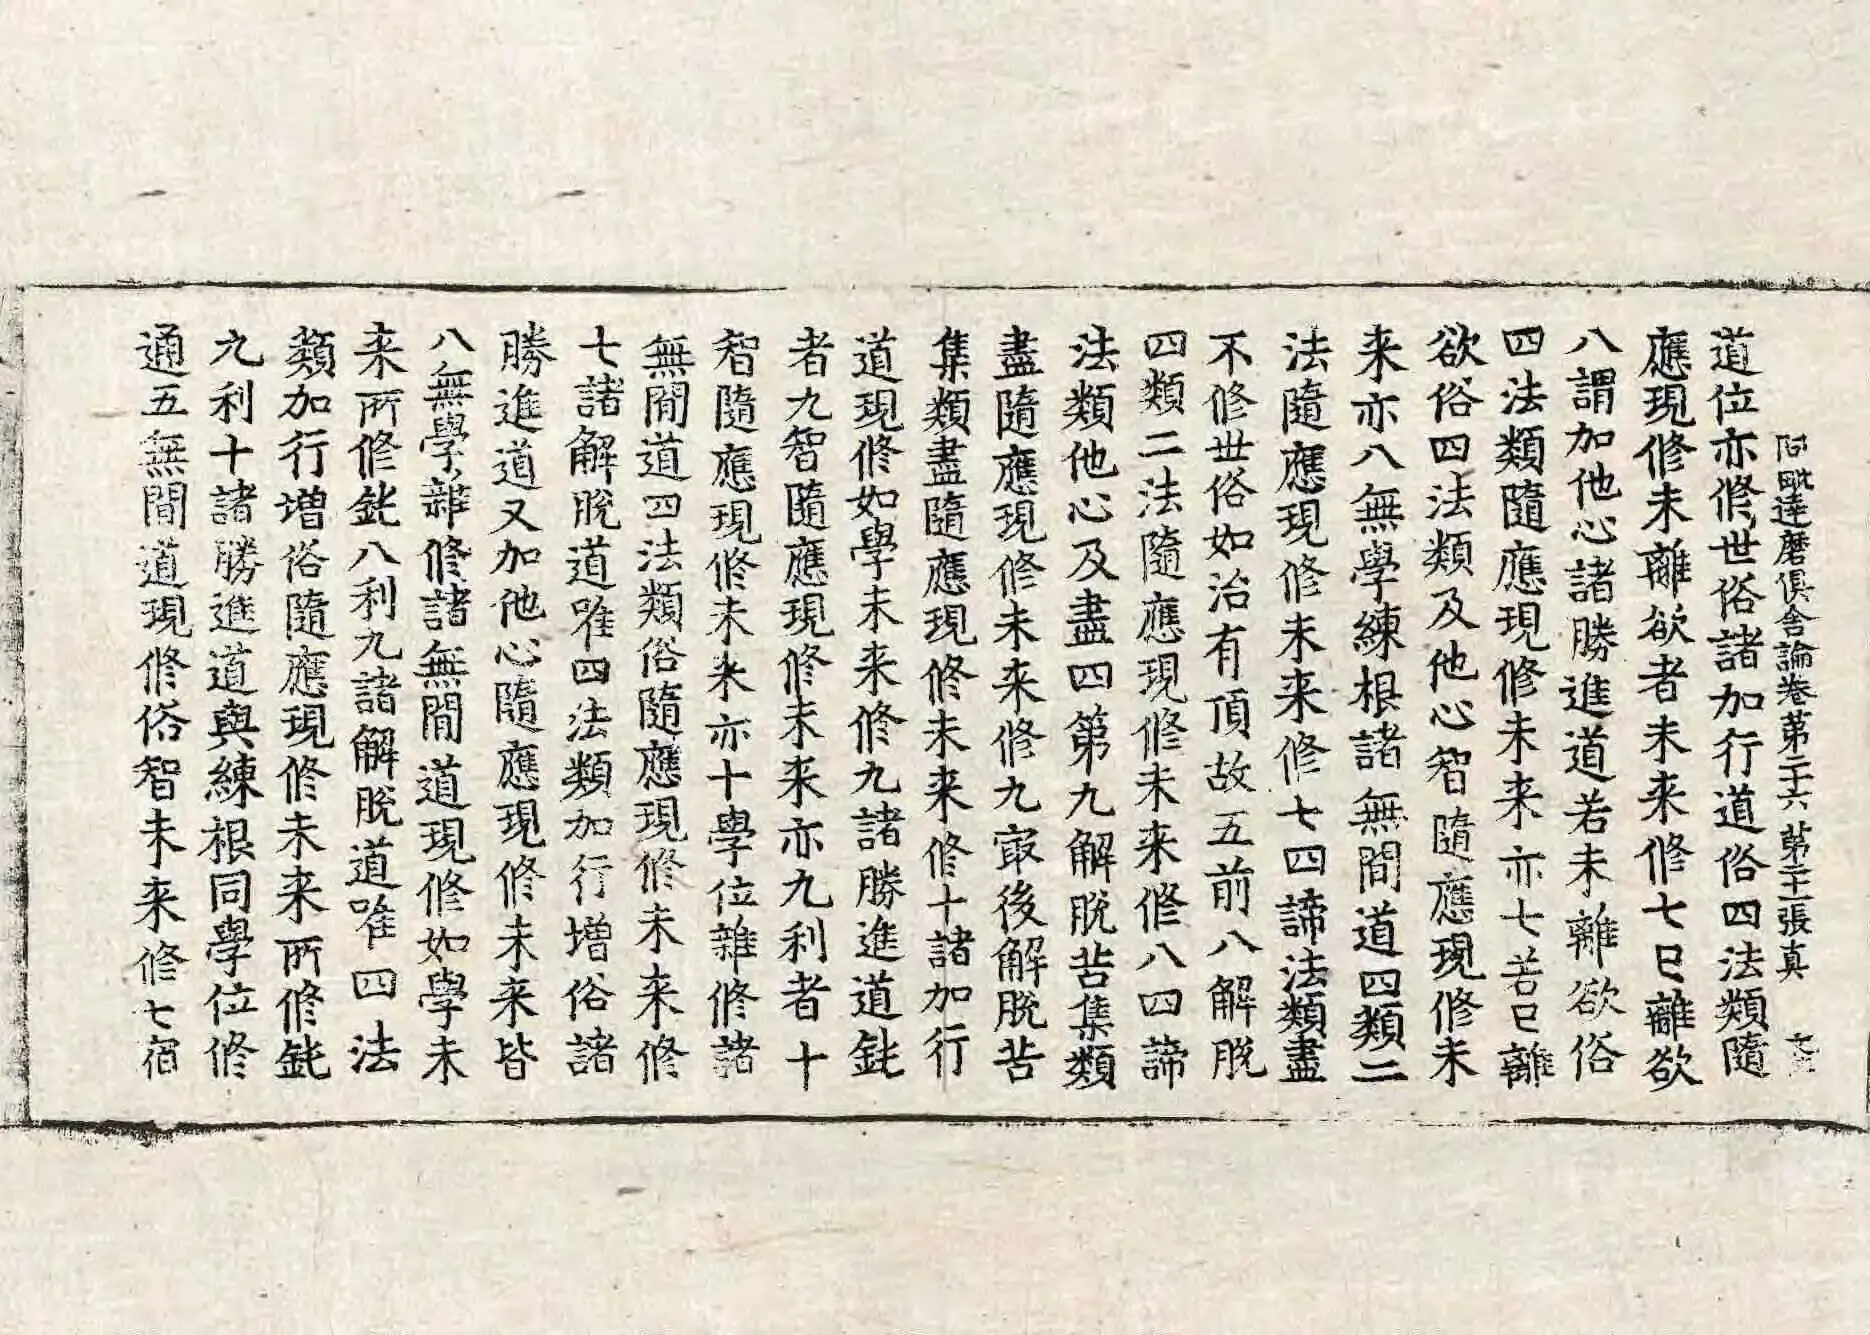 阿毗達磨俱舍論卷第二十六 第二十三張 真
道位亦修世俗諸加行道俗四法類隨
應現修未離欲者未来修七已離欲
八謂加他心諸勝進道若未離欲俗
四法類隨應現修未来亦七若已離
欲俗四法類及他心智隨應現修未
来亦八無學練根諸無間道四類二
法隨應現修未来修七四諦法類盡
不修世俗如治有頂故五前八解脫
四類二法隨應現修未来修八四諦
法類他心及盡四第九解脫苦集類
盡隨應現修未来修九㝡後解脫苦
集類盡隨應現修未来修十諸加行
道現修如學未来修九諸勝進道鈍
者九智隨應現修未来亦九利者十
智隨應現修未来亦十學位雜修諸
無間道四法類俗隨應現修未来修
七諸解脫道唯四法類加行增俗諸
勝進道又加他心隨應現修未来皆
八無學雜修諸無間道現修如學未
来所修鈍八利九諸解脫道唯四法
類加行增俗隨應現修未来所修鈍
九利十諸勝進道與練根同學位修
通五無間道現修俗智未来修七宿